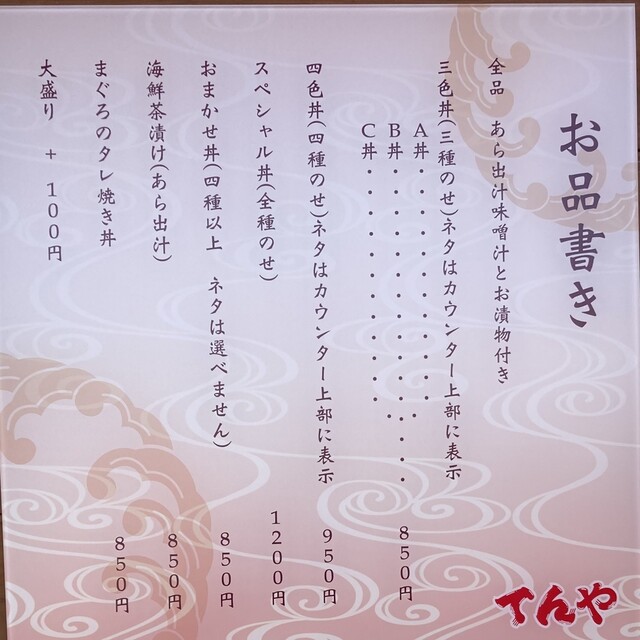 お品書き
全品 あら出汁味噌汁とお漬物付き
三色丼(三種のせ)ネタはカウンター上部に表示
A丼・・・・・・・・・・・・
B丼・・・・・・・・・・・・・・・ 850円
C丼・・・・・・・・・・・・
四色丼(四種のせ)ネタはカウンター上部に表示 950円
スペシャル丼(全種のせ) 1200円
おまかせ丼(四種以上 ネタは選べません) 850円
海鮮茶漬け(あら出汁) 850円
まぐろのタレ焼き丼 850円
大盛り + 100円
てんや